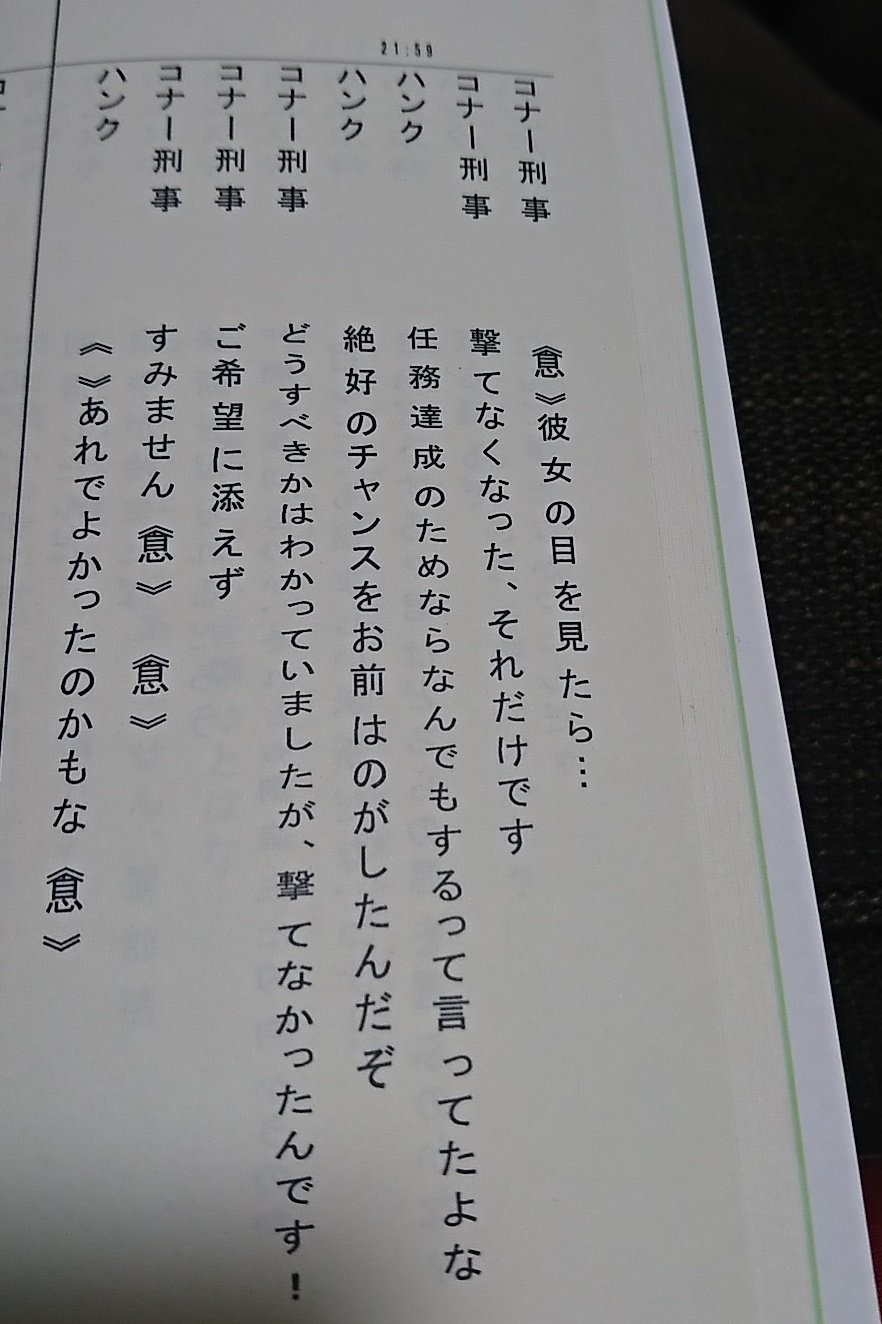 21:59
コナー刑事 《息》彼女の目を見たら…
コナー刑事 撃てなくなった、それだけです
ハンク 任務達成のためならなんでもするって言ってたよな
ハンク 絶好のチャンスをお前はのがしたんだぞ
コナー刑事 どうすべきかはわかっていましたが、撃てなかったんです!
コナー刑事 ご希望に添えず
コナー刑事 すみません《息》 《息》
ハンク 《》あれでよかったのかもな《息》